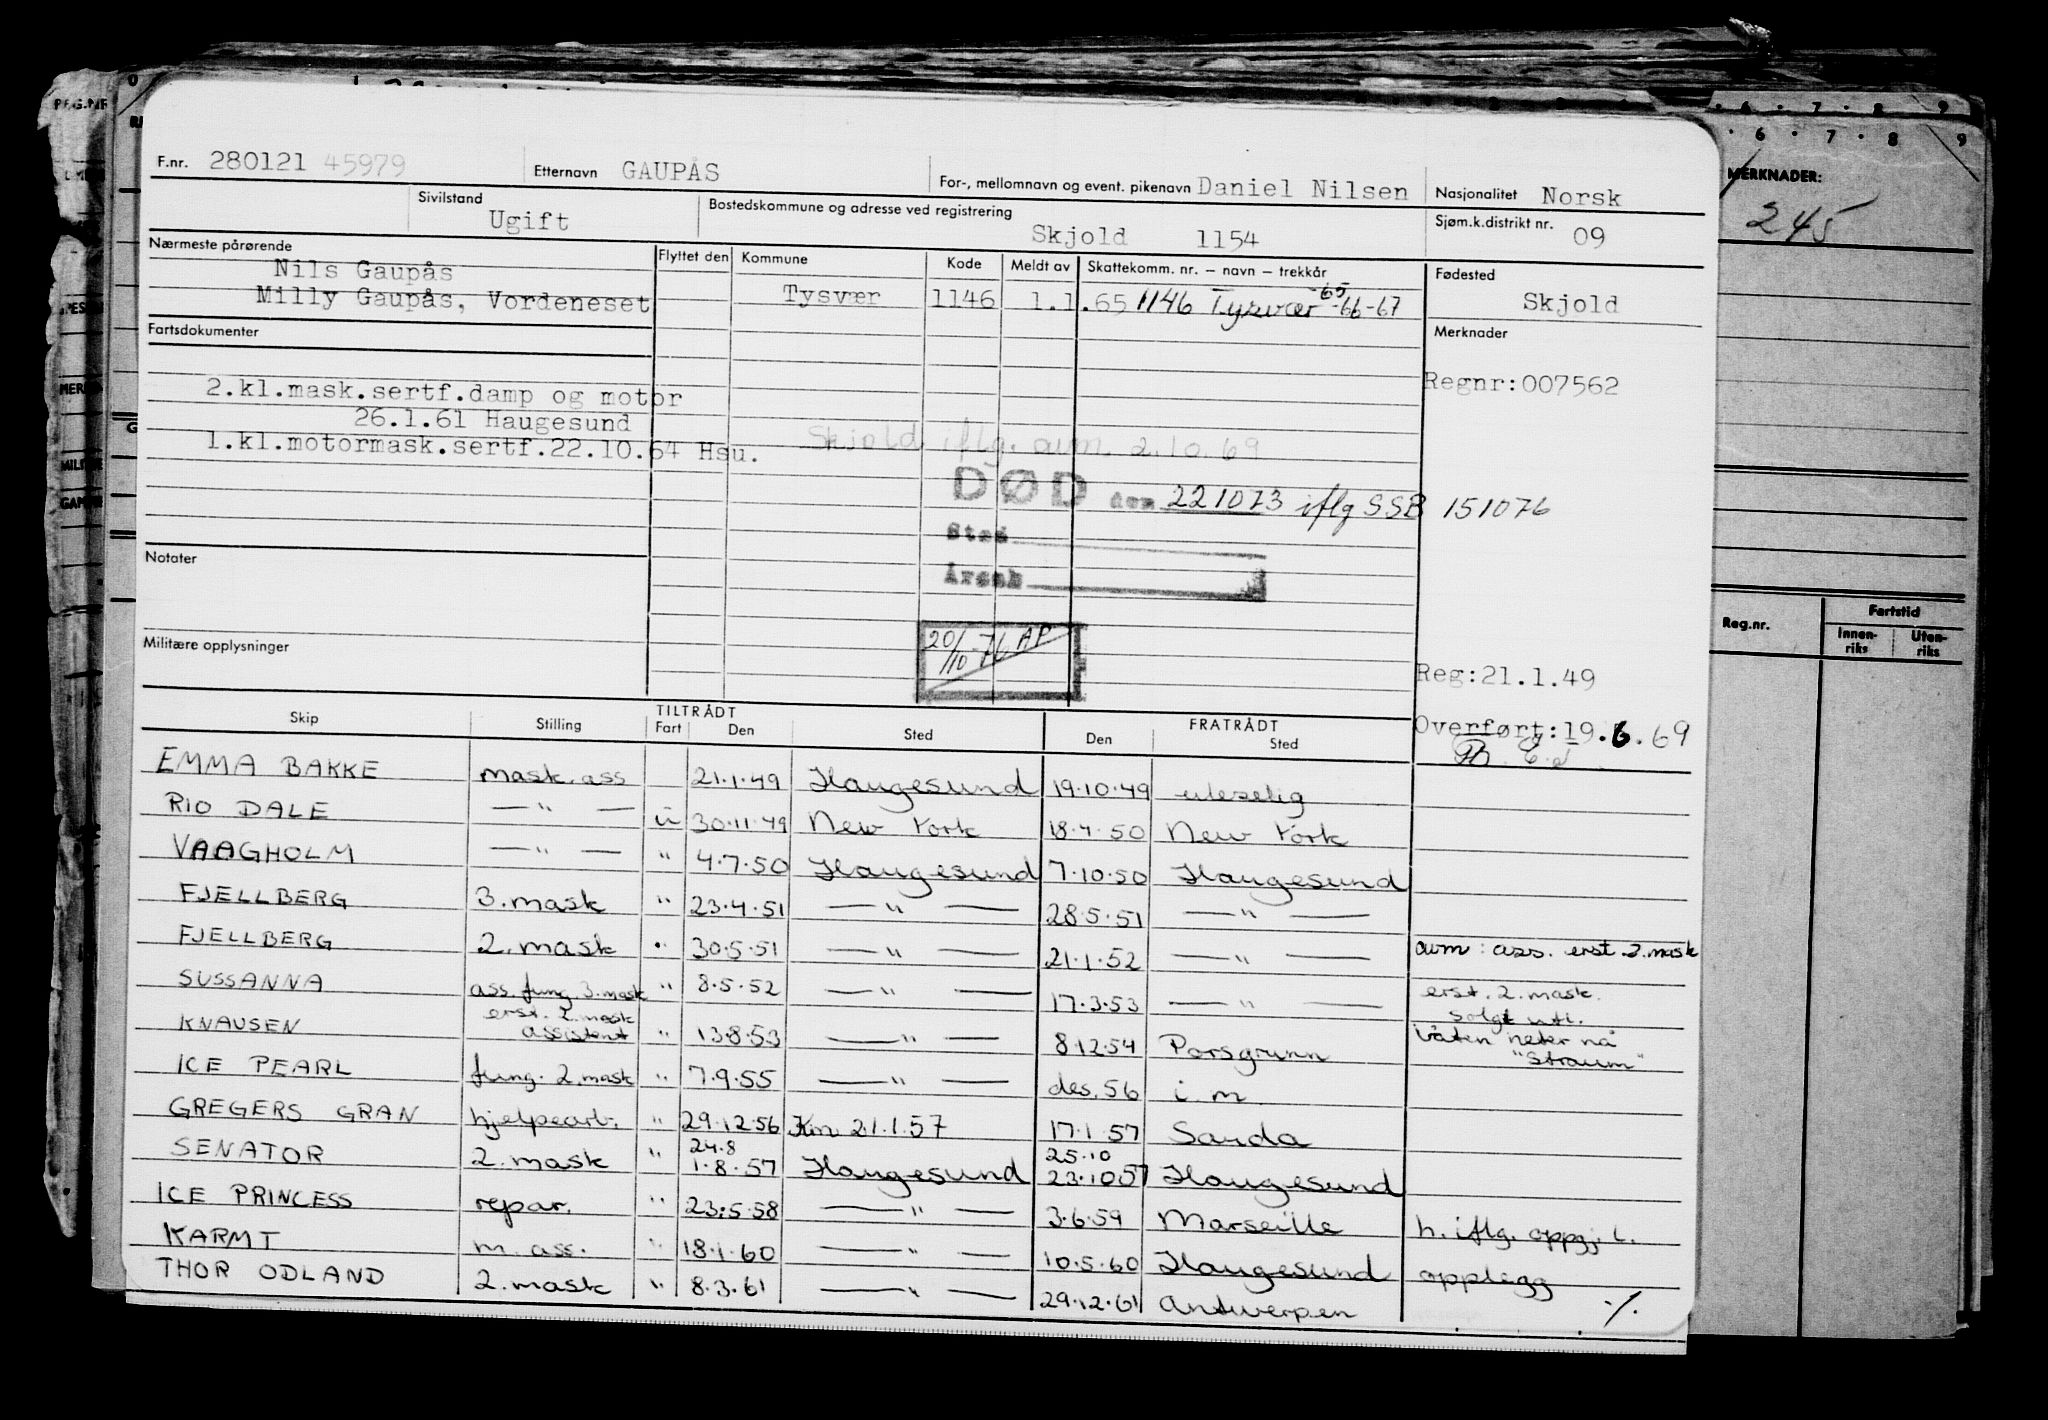 F.nr. 280121 45979 Etternavn GAUPÅS For-, mellomnavn og event. pikenavn Daniel Nilsen Nasjonalitet Norsk
Sivilstand Ugift Bostedskommune og adresse ved registrering Skjold 1154 Sjøm.k.distrikt nr. 09
Nærmeste pårørende Flyttet den Kommune Kode Meldt av Skattekomm. nr. – navn – trekkår Fødested
Nils Gaupås Skjold
Milly Gaupås, Vordeneset Tysvær 1146 1.1.65 1146 Tysvær -65 -66-67
Fartsdokumenter Merknader
2.kl.mask.sertf.damp og motor Regnr:007562
26.1.61 Haugesund
1.kl.motormask.sertf.22.10.64 Hsu. Skjold iflg. avm. 2.10.69
DØD den 221073 iflg SSB 151076
Sted
Årsak
Notater
20/10-76 AP
Militære opplysninger
Reg:21.1.49
Overført:19.6.69
Skip Stilling TILTRÅDT Fart Den Sted FRATRÅDT Den Sted
EMMA BAKKE mask.ass 21.1.49 Haugesund 19.10.49 uleselig
RIO DALE — " — u 30.11.49 New York 18.4.50 New York
VAAGHOLM — " — " 4.7.50 Haugesund 7.10.50 Haugesund
FJELLBERG 3.mask " 23.4.51 — " — 28.5.51 — " —
FJELLBERG 2.mask " 30.5.51 — " — 21.1.52 — " — avm: ass. erst.2.mask
SUSSANNA ass.fung.3.mask erst. 2.mask " 8.5.52 — " — 17.3.53 — " — erst. 2.mask. solgt utl.
KNAUSEN assistent " 13.8.53 — " — 8.12.54 Porsgrunn båten heter nå "Straum"
ICE PEARL fung. 2.mask " 7.9.55 — " — des.56 i.m.
GREGERS GRAN hjelpearb. " 29.12.56 Km 21.1.57 17.1.57 Sauda
SENATOR 2.mask " 24.8 1.8.57 Haugesund 25.10 23.10.57 Haugesund
ICE PRINCESS repar. " 23.5.58 — " — 3.6.59 Marseille h. iflg. oppgj. l.
KARMT m.ass. " 18.1.60 — " — 10.5.60 Haugesund opplegg
THOR ODLAND 2.mask " 8.3.61 — " — 29.12.61 Antwerpen ./.
6 · 7 · 8 9
6 · 7 · 8 9
MERKNADER:
245
Reg.nr. Fartstid
Innenriks Utenriks